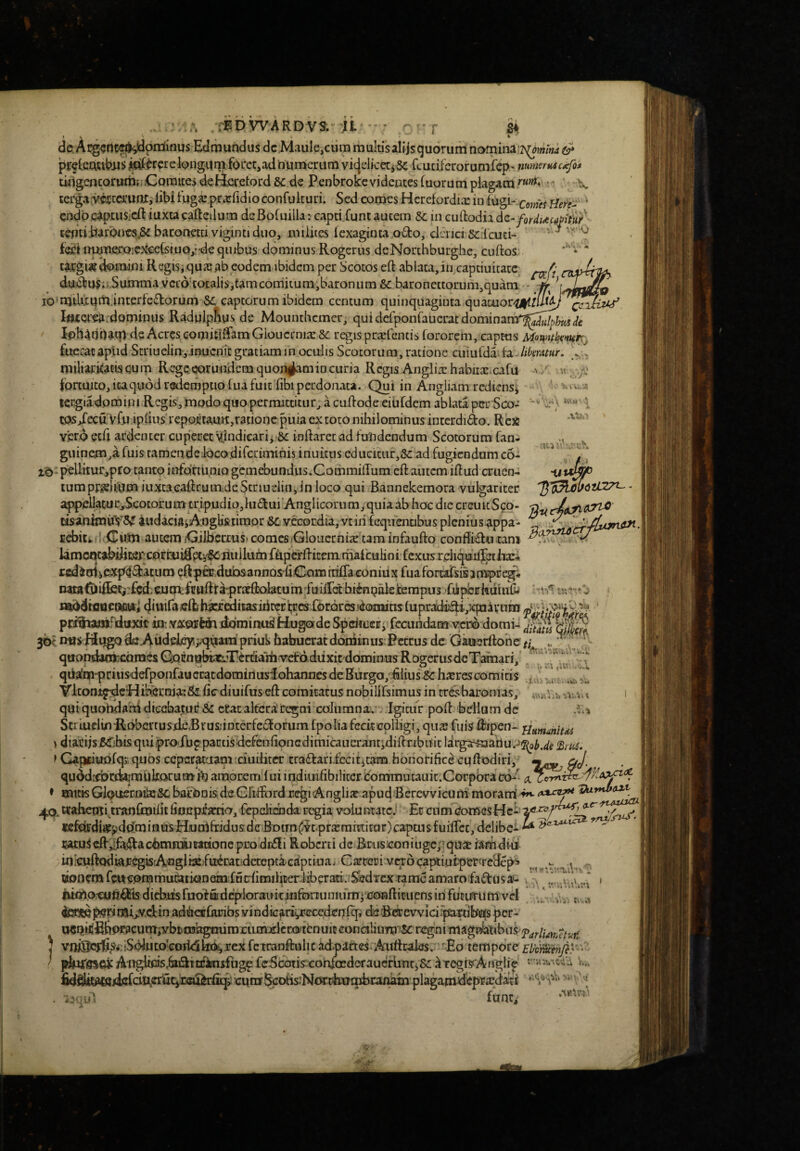 EDVVARDVS II. 84
de Argenteo, dominus Edmundus de Maule, cum multis alijs quorum nomina
præsentibus inserere longum foret, ad numerum videlicet, & scutiferorum sep-
tingentorum. Comites de Hereford & de Penbroke videntes suorum plagam
terga verterunt, sibi fugæ præsidio consulturi. Sed comes Herefordiæ in fugi-
endo captus est iuxta castellum de Bofuilla: capti sunt autem & in custodia de-
tenti barones & baronetti viginti duo, milites sexaginta octo, clerici & scuti-
feri numero excessiuo, de quibus dominus Rogerus de Northburghe, custos
targiæ domini Regis, quæ ab eodem ibidem per Scotos est ablata, in captiuitate
ductus. Summa verò totalis, tam comitum, baronum & baronettorum, quàm
10 militum interfectorum & captorum ibidem centum quinquaginta quatuor
Interea dominus Radulphus de Mounthemer, qui desponsauerat dominam
Iohannam de Acres comitissam Glouerniæ & regis præsentis sororem, captus
fuerat apud Striuelin, inuenit gratiam in oculis Scotorum, ratione cuiusdã fa-
miliaritatis cum Rege eorundem quondam in curia Regis Angliæ habitæ casu
fortuito, ita quòd redemptio sua fuit sibi perdonata. Qui in Angliam rediens,
tergiã domini Regis, modo quo permittitur, à custode eiusdem ablatã per Sco-
tos, secũ vsu ipsius reportauit, ratione puia ex toto nihilominus interdicto. Rex
verò etsi ardenter cuperet vindicari, & instaret ad fundendum Scotorum san-
guinem, à suis tamen de loco discriminis inuitus educitur, & ad fugiendum cõ-
20 pellitur, pro tanto infortunio gemebundus. Commissum est autem istud cruen-
tum prælium iuxta castrum de Striuelin, in loco qui Bannekemora vulgariter
appellatur, Scotorum tripudio, luctui Anglicorum, quia ab hoc die creuit Sco-
tis animus & audacia, Anglis timor & vecordia, vt in sequentibus plenius appa-
rebit. Cum autem Gilbertus comes Glouerniæ tam infausto conflictu tam
lamentabiliter corruisset, & nullum superstitem masculini sexus reliquisset hæ-
redem, expectatum est per duos annos si Comitissa coniux sua fortassis imprægnata
fuisset, sed cum frustrà præstolatum fuisset biennale tempus
diuisa est hæreditas inter tres sorores comitis supradicti, quarum
primam duxit in vxorem dominus Hugo de Spenser, secundam verò domi-
30 nus Hugo de Audeley, quam priùs habuerat dominus Petrus de Gauerstone
quondam comes Cornubiæ. Tertiam verò duxit dominus Rogerus de Tamari,
quam priùs desponsauerat dominus Iohannes de Burgo, filius & hæres comitis
Vltoniæ de Hibernia: & sic diuisus est comitatus nobilissimus in tres baronias,
qui quondam dicebatur & erat altera regni columna. Igitur post bellum de
Striuelin Robertus de Brus interfectorum spolia fecit colligi, quæ suis stipen-
diarijs & his qui pro suæ partis defensione dimicauerant, distribuit larga manu.
Captiuosq; quos ceperat tam ciuiliter tractari fecit, tam honorificè custodiri,
quòd corda multorum in amorem sui indiuisibiliter commutauit. Corpora co-
mitis Glouerniæ & baronis de Clifford regi Angliæ apud Berevvicum moram
40 trahenti transmisit sine pretio, sepelienda regia voluntate. Et cum comes He-
refordiæ, dominus Humfridus de Boun (vt præmittitur) captus fuisset, delibe-
ratus est, facta commutatione pro dicti Roberti de Brus coniuge, quæ iam diu
in custodia regis Angliæ fuerat detenta captiua. Cæteri verò captiui per redẽp-
tionem seu commutationem fuerũt similiter liberati. Sed rex tamẽ amaro factus a-
nimo cunctis diebus suorũ deplorauit infortunium, constituens in futurum vel
vindicari, recedensq; de Berevvici partibus per-
uenit Eboracum, vbi magnum cum clero tenuit concilium & regni magnatibus
vniuersis. Soluto concilio, rex se transtulit ad partes Australes. Eo tempore
plures ex Anglicis, facti transfugæ se Scotis confœderauerunt, & à regis Angliæ
fidelitate desciuerũt, reuersiq; cum Scotis Northumbranam plagam deprædati
sunt,
Nomina &
numerus
Comes Here-
Radulphus de
liberatur.
Bannockburn
Humanitas
Rob. de Brus.
Parliamentum